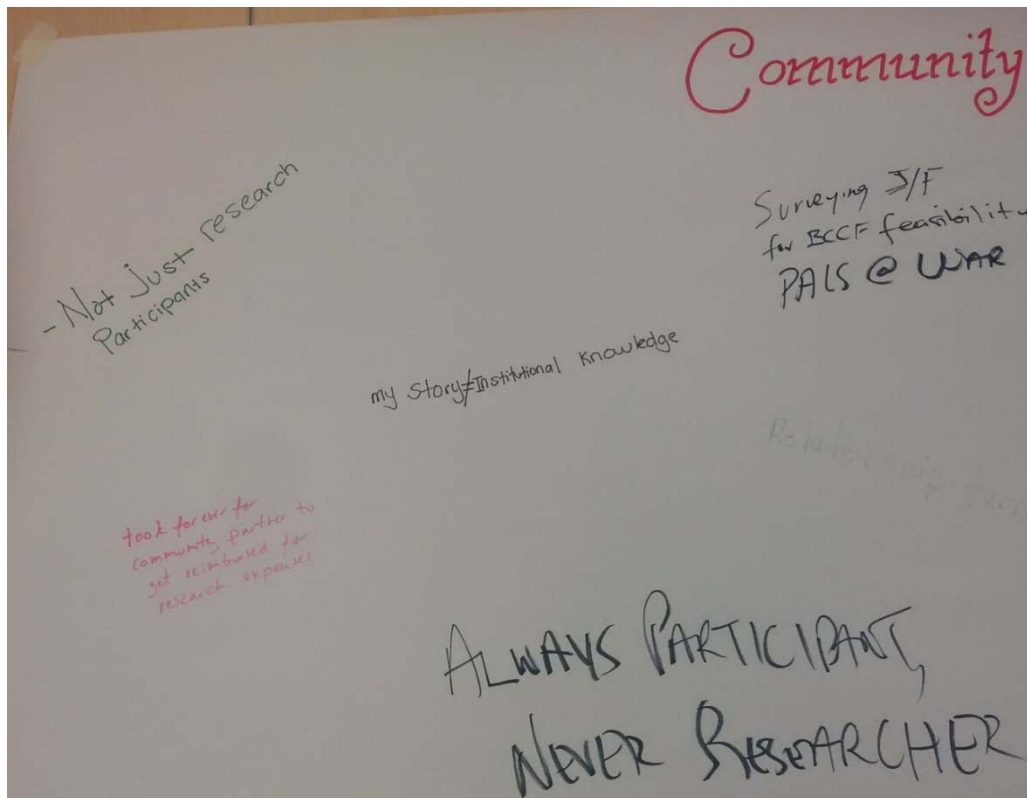 Community
- Not Just research
Participants
Surveying J/F
for BCCF feasibility
PALS @ WAR
my story≠Institutional Knowledge
took forever for
community partner to
get reimbursed for
research expenses
ALWAYS PARTICIPANT,
NEVER RESEARCHER